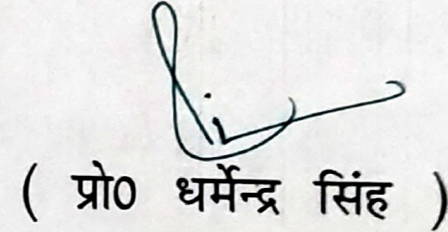 ( प्रो0 धर्मेन्द्र सिंह )